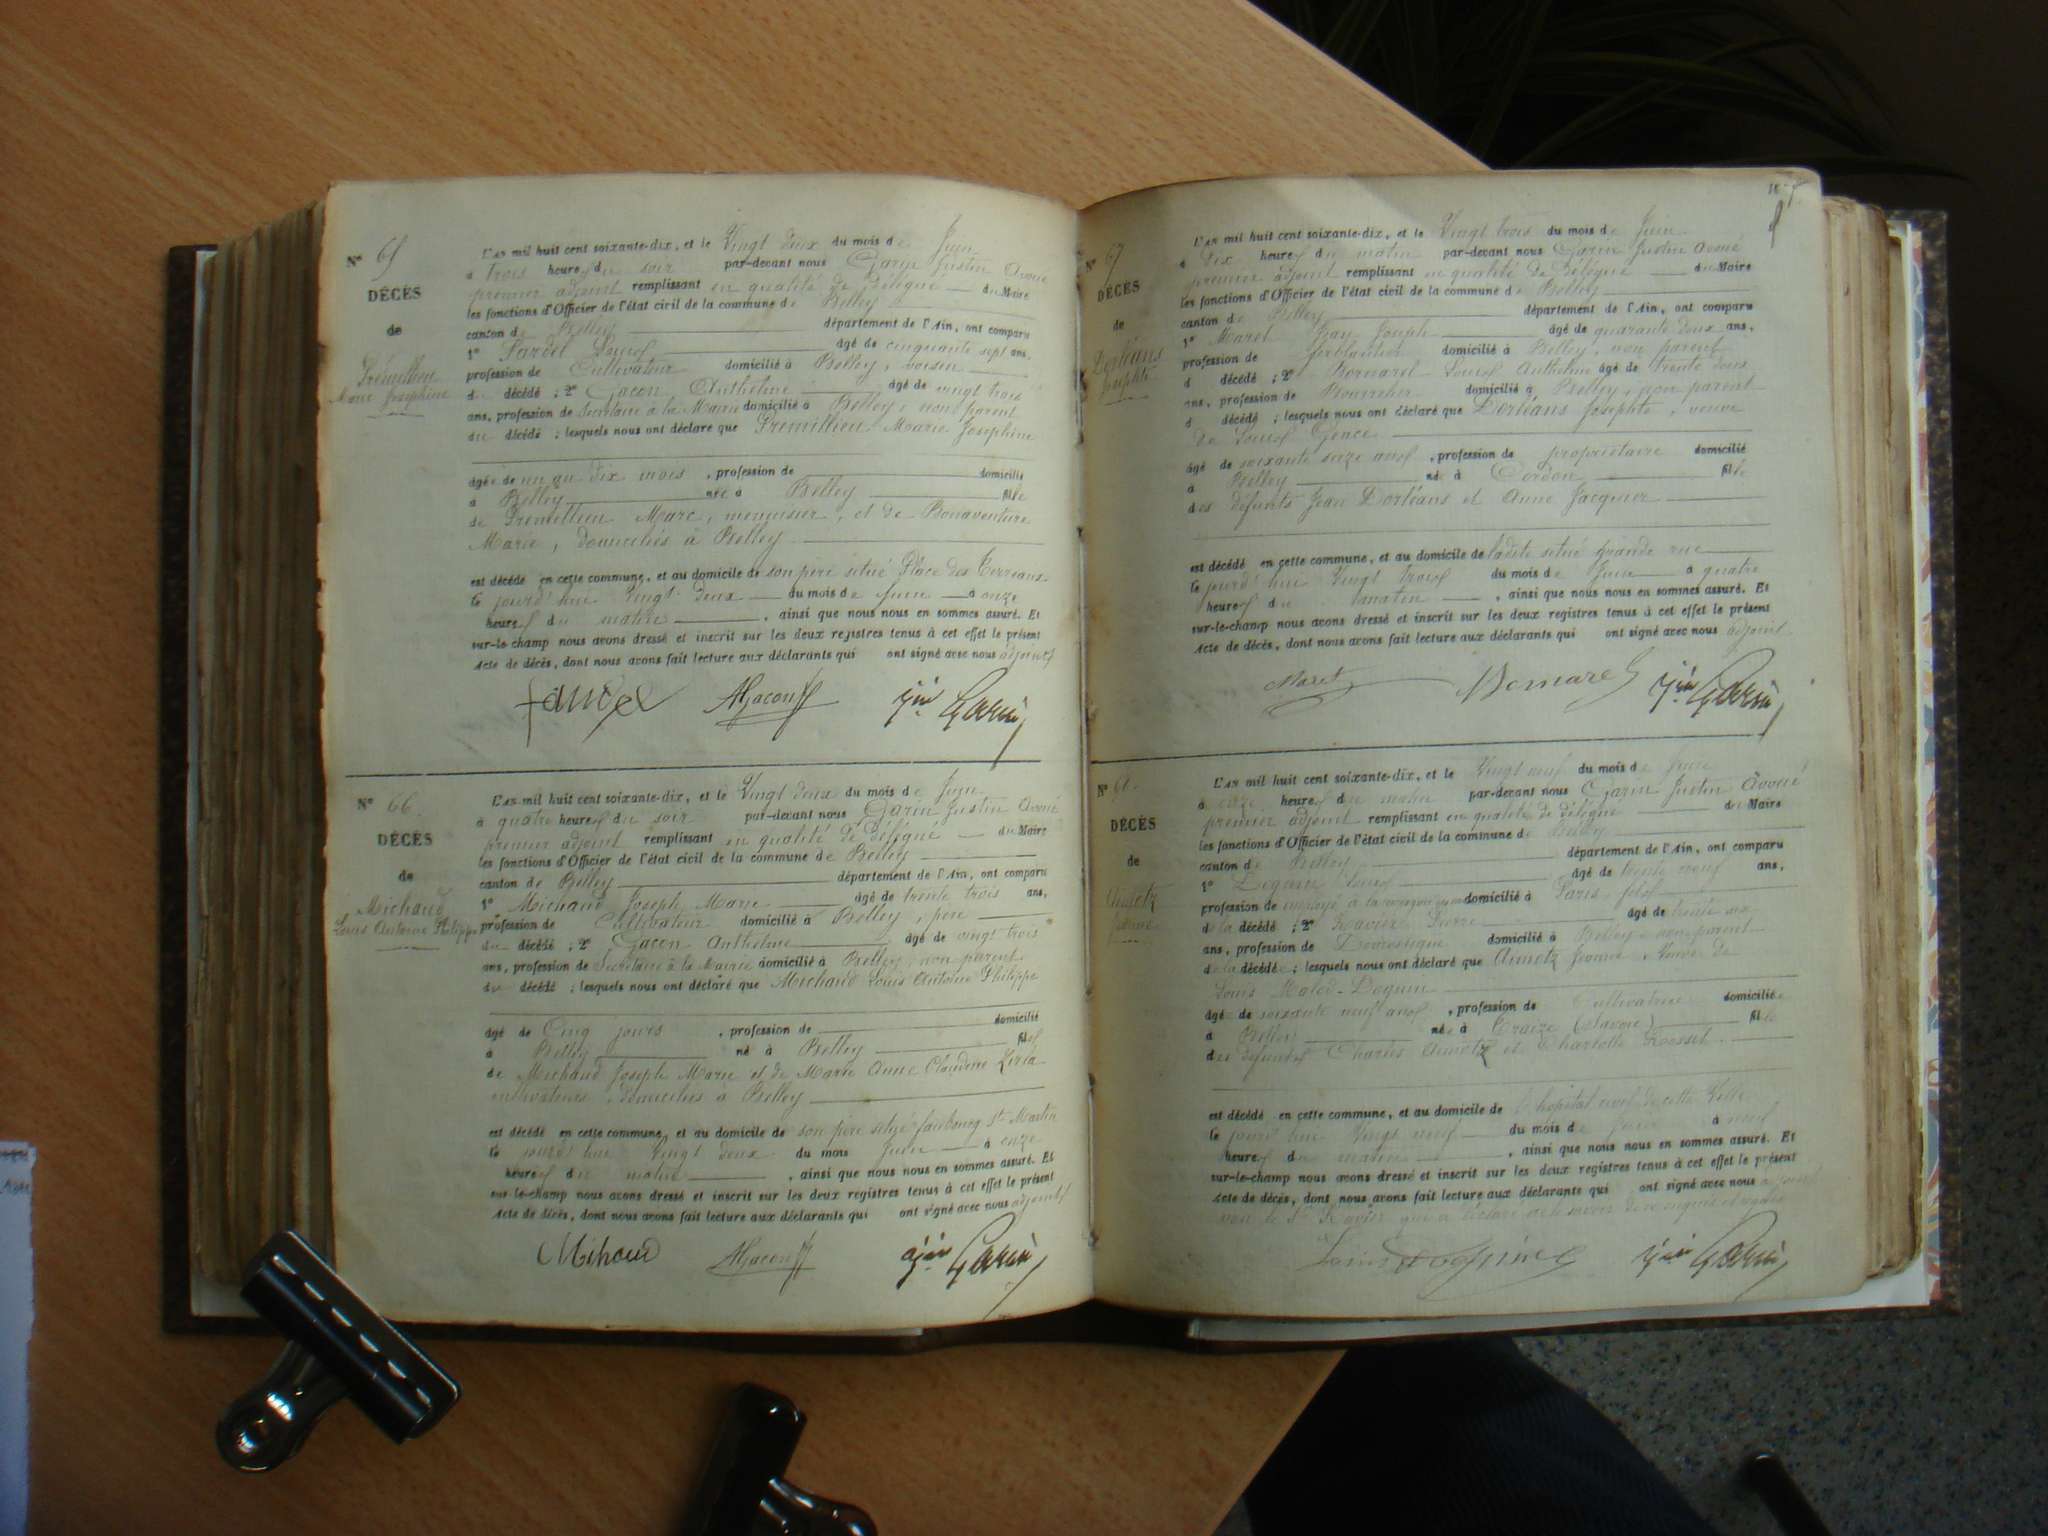 N° 65
DÉCÈS
de
Frémillieu
Marie Joséphine
L'AN mil huit cent soixante-dix, et le Vingt deux du mois de Juin
à trois heures du soir par-devant nous Garin Justin Avoué
premier adjoint remplissant en qualité de délégué du Maire
les fonctions d'Officier de l'état civil de la commune de Belley
canton de Belley département de l'Ain, ont comparu
1° Fardel Louis âgé de cinquante sept ans,
profession de Cultivateur domicilié à Belley, voisin
du décédé ; 2° Gacon Anthelme âgé de vingt trois
ans, profession de Secrétaire à la Mairie domicilié à Belley, non parent
du décédé ; lesquels nous ont déclaré que Frémillieu Marie Joséphine
âgée de un an dix mois, profession de domicilié
à Belley née à Belley fille
de Frémillieu Marc, menuisier, et de Bonaventure
Marie, domiciliés à Belley
est décédé en cette commune, et au domicile de son père situé Place des Terreaux
le jourd'hui Vingt deux du mois de Juin à onze
heures du matin, ainsi que nous nous en sommes assuré. Et
sur-le-champ nous avons dressé et inscrit sur les deux registres tenus à cet effet le présent
Acte de décès, dont nous avons fait lecture aux déclarants qui ont signé avec nous adjoint
fardel AGacon Jin Garin
N° 66
DÉCÈS
de
Michaud
Louis Antoine Philippe
L'AN mil huit cent soixante-dix, et le Vingt deux du mois de Juin
à quatre heures du soir par-devant nous Garin Justin Avoué
premier adjoint remplissant en qualité de Délégué du Maire
les fonctions d'Officier de l'état civil de la commune de Belley
canton de Belley département de l'Ain, ont comparu
1° Michaud Joseph Marie âgé de trente trois ans,
profession de Cultivateur domicilié à Belley, père
du décédé ; 2° Gacon Anthelme âgé de vingt trois
ans, profession de Secrétaire à la Mairie domicilié à Belley non parent
du décédé ; lesquels nous ont déclaré que Michaud Louis Antoine Philippe
âgé de Cinq jours, profession de domicilié
à Belley né à Belley fils
de Michaud Joseph Marie et de Marie Anne Claudine
cultivateurs domiciliés à Belley
est décédé en cette commune, et au domicile de son père situé faubourg St Martin
le jourd'hui Vingt deux du mois Juin à onze
heures du matin, ainsi que nous nous en sommes assuré. Et
sur-le-champ nous avons dressé et inscrit sur les deux registres tenus à cet effet le présent
Acte de décès, dont nous avons fait lecture aux déclarants qui ont signé avec nous adjoint
Mihaud AGacon Jin Garin
N° 67
DÉCÈS
de
Dorléans
Josephte
L'AN mil huit cent soixante-dix, et le Vingt trois du mois de Juin
à Dix heures du matin par-devant nous Garin Justin Avoué
premier adjoint remplissant en qualité de Délégué du Maire
les fonctions d'Officier de l'état civil de la commune de Belley
canton de Belley département de l'Ain, ont comparu
1° Maret Jean Joseph âgé de quarante deux ans,
profession de ferblantier domicilié à Belley, non parent
d décédé ; 2° Bornarel Louis Anthelme âgé de trente deux
ans, profession de Bourrelier domicilié à Belley, non parent
d décédé ; lesquels nous ont déclaré que Dorléans Josephte, veuve
de Louis Gence
âgé de soixante onze ans, profession de propriétaire domicilié
à Belley née à Cordon fille
des défunts Jean Dorléans et Anne Jacquier
est décédé en cette commune, et au domicile de ladite situé grande rue
le jourd'hui Vingt trois du mois de Juin à quatre
heures du matin, ainsi que nous nous en sommes assuré. Et
sur-le-champ nous avons dressé et inscrit sur les deux registres tenus à cet effet le présent
Acte de décès, dont nous avons fait lecture aux déclarants qui ont signé avec nous adjoint
Maret Bornarel Jin Garin
N°
DÉCÈS
de
Aimetz
Jeanne
L'AN mil huit cent soixante-dix, et le Vingt neuf du mois de Juin
à onze heures du matin par-devant nous Garin Justin Avoué
premier adjoint remplissant en qualité de délégué du Maire
les fonctions d'Officier de l'état civil de la commune de Belley
canton de Belley département de l'Ain, ont comparu
1° Deguin Louis âgé de trente neuf ans,
profession de employé à la domicilié à Paris fils
de la décédé ; 2° Ravier Pierre âgé de trente six
ans, profession de Domestique domicilié à Belley non parent
de la décédé ; lesquels nous ont déclaré que Aimetz Jeanne, Veuve de
Louis Deguin
âgé de soixante neuf ans, profession de Cultivatrice domicilié
à Belley née à Traize (Savoie) fille
des défunts Charles Aimetz et Charlotte Rosset
est décédé en cette commune, et au domicile de l'hôpital civil de cette Ville
le jourd'hui Vingt neuf du mois de Juin à neuf
heures du matin, ainsi que nous nous en sommes assuré. Et
sur-le-champ nous avons dressé et inscrit sur les deux registres tenus à cet effet le présent
Acte de décès, dont nous avons fait lecture aux déclarants qui ont signé avec nous adjoint
non le Sr Ravier qui a déclaré ne le savoir de ce enquis et requis
Jin Garin